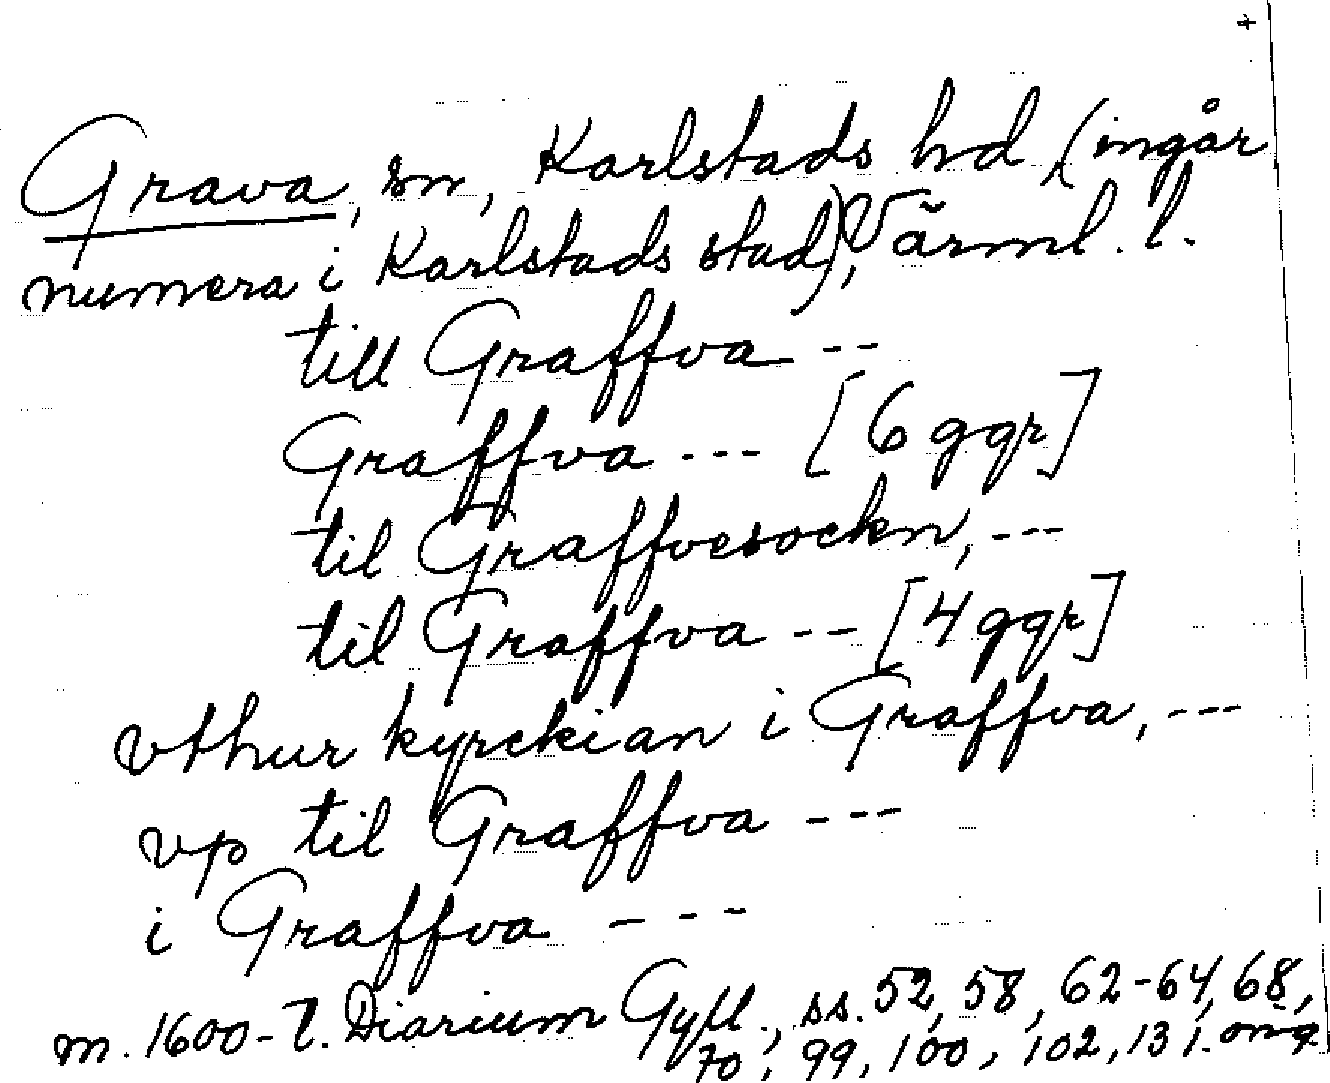 +
Grava, sn, Karlstads hd (ingår
numera i Karlstads stad), Värml. l.
till Graffva --
Graffva --- [6 ggr]
til Graffvesockn, ---
til Graffva -- [4 ggr]
vthur kyrckian i Graffva, ---
vp til Graffva ---
i Graffva ---
m. 1600-t. Diarium Gyll., ss. 52, 58, 62-64, 68,
70, 99, 100, 102, 131.